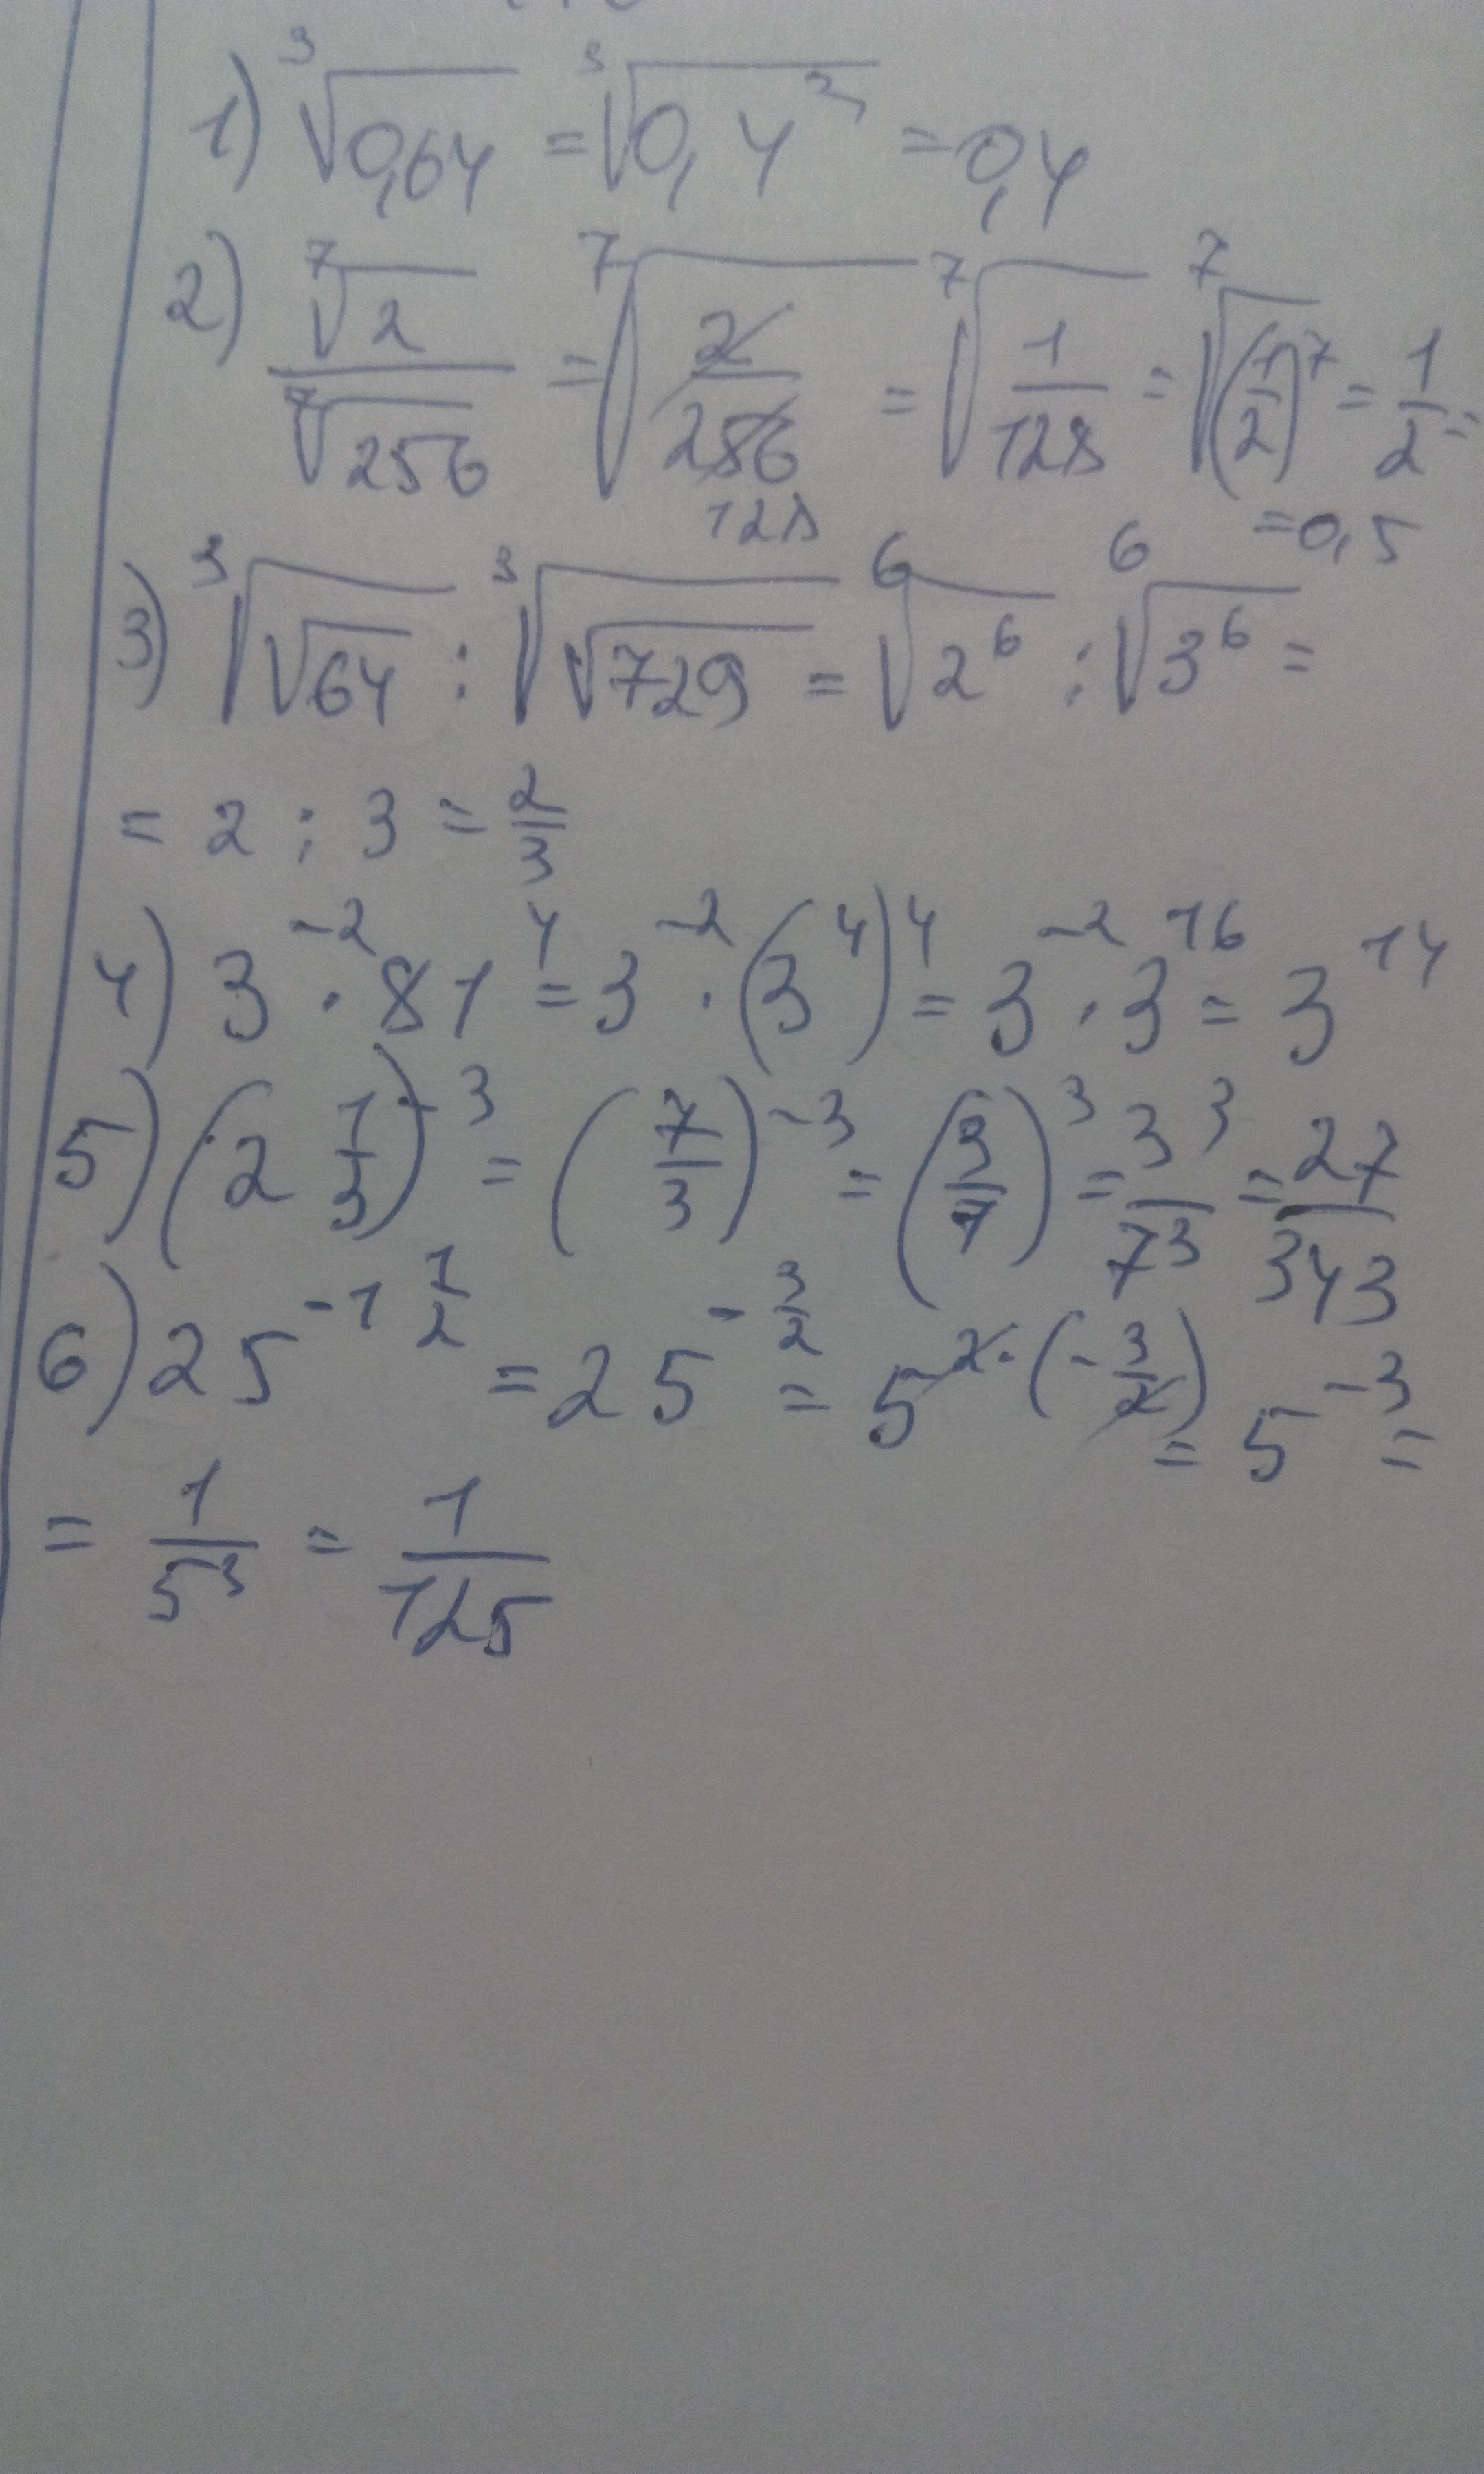 1) ∛0,64 = ∛0,4³ = 0,4
2) ⁷√2 / ⁷√256 = ⁷√(2/256) = ⁷√(1/128) = ⁷√(1/2)⁷ = 1/2 =
128
= 0,5
3) ∛√64 : ∛√729 = ⁶√2⁶ : ⁶√3⁶ =
= 2 : 3 = 2/3
4) 3⁻² · 81⁴ = 3⁻² · (3⁴)⁴ = 3⁻² · 3¹⁶ = 3¹⁴
5) (2 1/3)⁻³ = (7/3)⁻³ = (3/7)³ = 3³/7³ = 27/343
6) 25^(-1 1/2) = 25^(-3/2) = 5^(2·(-3/2)) = 5⁻³ =
= 1/5³ = 1/125